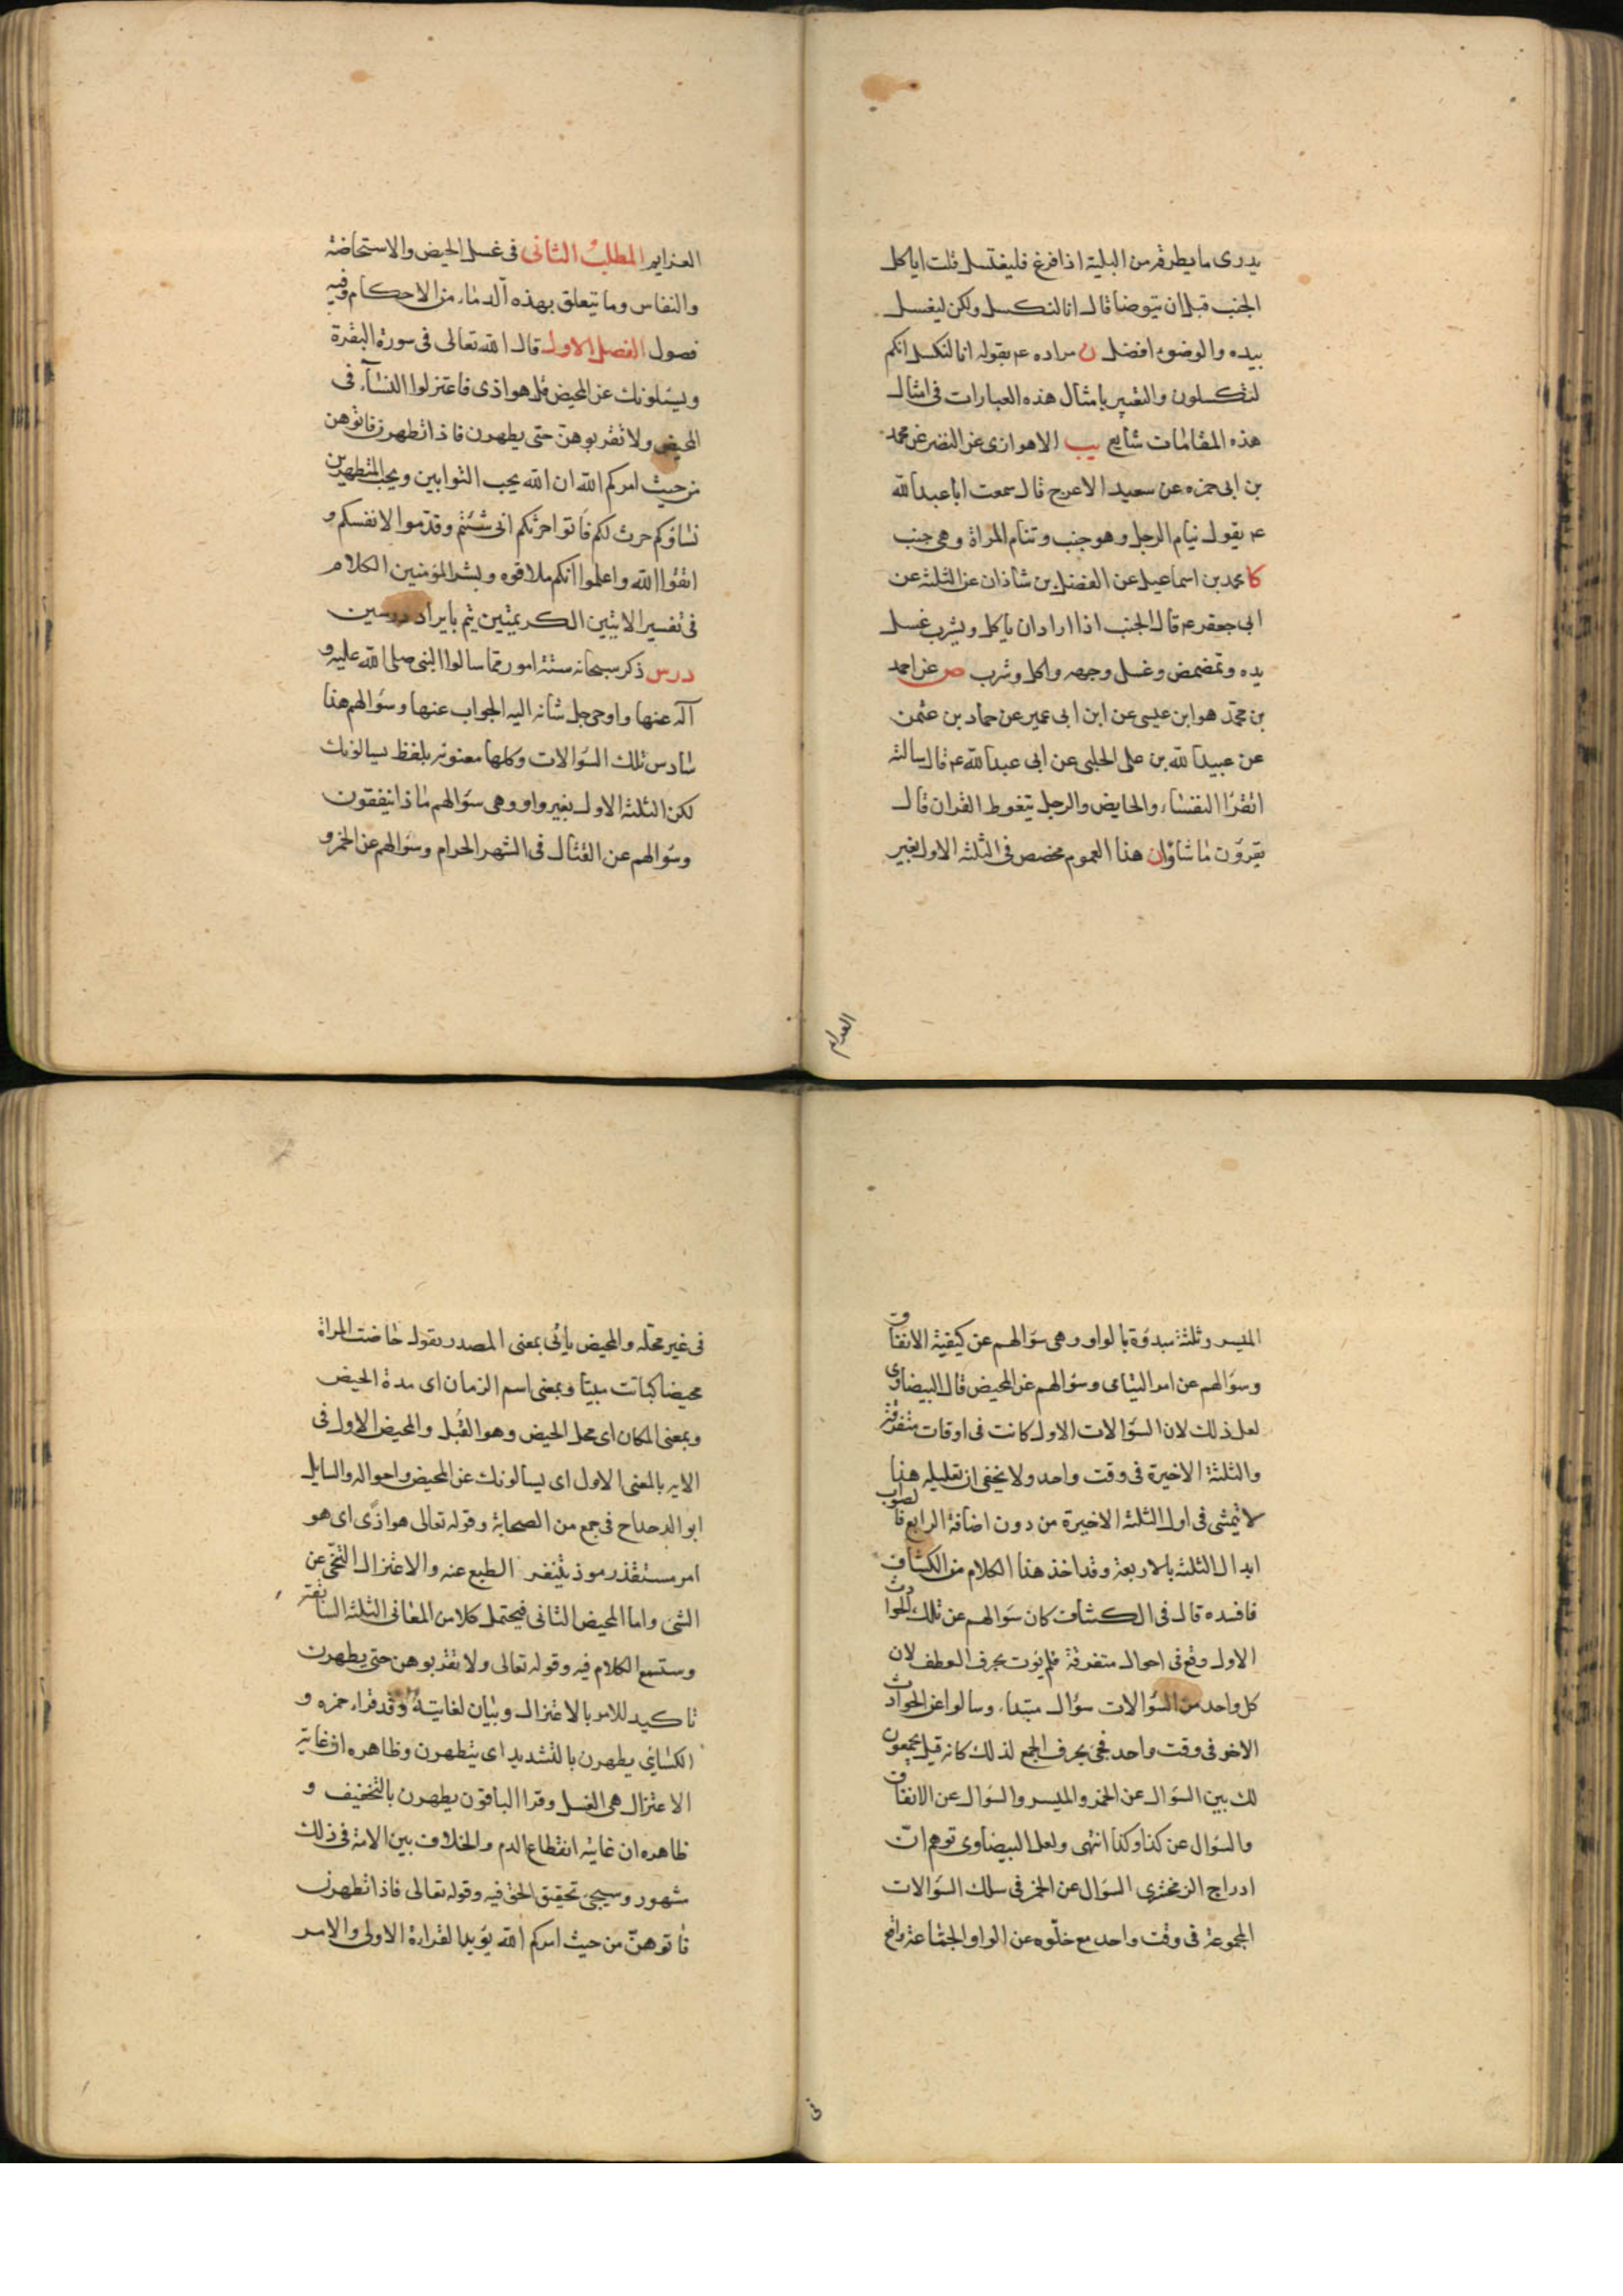 يدرى ما يطرقه من البلية اذا فرغ فليغتسل قلت اياكل
الجنب قبل ان يتوضا قال انا لنكسل ولكن ليغسل
بيده والوضوء افضل ن مراده ع بقوله انا لنكسل انكم
لتكسلون والتعبير بامثال هذه العبارات فى امثال
هذه المقامات شايع يب الاهوازى عن النضر عن محمد
بن ابى حمزه عن سعيد الاعرج قال سمعت ابا عبد الله
ع يقول ينام الرجل وهو جنب وتنام المراة وهى جنب
كا محمد بن اسماعيل عن الفضل بن شاذان عن الثلثه عن
ابى جعفر ع قال الجنب اذا اراد ان ياكل ويشرب غسل
يده وتمضمض وغسل وجهه واكل وشرب ص عن احمد
بن محمد هو ابن عيسى عن ابن ابى عمير عن حماد بن عثمن
عن عبيد الله بن على الحلبى عن ابى عبد الله ع قال سالته
اتقرا النفساء والحايض والرجل يتغوط القران قال
يقرؤن ما شاؤا ن هذا العموم مخصص فى الثلثه الاول بغير
العزايم
العزايم المطلب الثانى فى غسل الحيض والاستحاضة
والنفاس وما يتعلق بهذه الدماء من الاحكام وفيه
فصول الفصل الاول قال الله تعالى فى سورة البقرة
ويسئلونك عن المحيض قل هو اذى فاعتزلوا النسآء فى
المحيض ولا تقربوهن حتى يطهرن فاذا تطهرن فاتوهن
من حيث امركم الله ان الله يحب التوابين ويحب المتطهرين
نساؤكم حرث لكم فاتوا حرثكم انى شئتم وقدموا لانفسكم و
اتقوا الله واعلموا انكم ملاقوه وبشر المؤمنين الكلام
فى تفسير الايتين الكريمتين يتم بايراد درسين
درس ذكر سبحانه ستة امور مما سالوا النبى صلى الله عليه و
آله عنها واوحى جل شانه اليه الجواب عنها وسؤالهم هذا
سادس تلك السؤالات وكلها معنونه بلفظ يسالونك
لكن الثلثه الاول بغير واو وهى سؤالهم ماذا ينفقون
وسؤالهم عن القتال فى الشهر الحرام وسؤالهم عن الخمر و
الميسر وثلثة مبدوة بالواو وهى سؤالهم عن كيفية الانفاق
وسؤالهم عن امر اليتامى وسؤالهم عن المحيض قال البيضاوى
لعل ذلك لان السؤالات الاول كانت فى اوقات متفرقة
والثلثة الاخيرة فى وقت واحد ولا يخفى ان تعليله هذا
لا يتمشى فى اول الثلثه الاخيرة من دون اضافة الرابع فالصواب
ابدال الثلثه بالاربعة وقد اخذ هذا الكلام من الكشاف
فافسده قال فى الكشاف كان سؤالهم عن تلك الحوادث
الاول وقع فى احوال متفرقة فلم يؤت بحرف العطف لان
كل واحد من السؤالات سؤال مبتداء وسالوا عن الحوادث
الاخر فى وقت واحد فجئ بحرف الجمع لذلك كانه قيل يجمعون
لك بين السؤال عن الخمر والميسر والسؤال عن الانفاق
والسؤال عن كذا وكذا انتهى ولعل البيضاوى توهم ان
ادراج الزمخشرى السؤال عن الخمر فى سلك السؤالات
المجموعة فى وقت واحد مع خلوه عن الواو الجماعة واقع
فى
فى غير محله والمحيض يأتى بمعنى المصدر يقول حاضت المراة
محيضا كباتت مبيتا وبمعنى اسم الزمان اى مدة الحيض
وبمعنى المكان اى محل الحيض وهو القُبل والمحيض الاول فى
الايه بالمعنى الاول اى يسالونك عن المحيض واحواله والسايل
ابو الدحداح فى جمع من الصحابة وقوله تعالى هو اذًى اى هو
امر مستقذر موذ يتنفر الطبع عنه والاعتزال التنحّى عن
الشئ واما المحيض الثانى فيحتمل كلا من المعانى الثلثه السابقه
وستسمع الكلام فيه وقوله تعالى ولا تقربوهن حتى يطهرن
تاكيد للامر بالاعتزال وبيان لغايتة وقد قراء حمزه و
الكسايى يطهرن بالتشديد اى يتطهرن وظاهره ان غاية
الاعتزال هى الغسل وقرا الباقون يطهرن بالتخفيف و
ظاهره ان غايته انقطاع الدم والخلاف بين الامة فى ذلك
مشهور وسيجئ تحقيق الحق فيه وقوله تعالى فاذا تطهرن
فاتوهنّ من حيث امركم الله يؤيد القراءة الاولى والامر